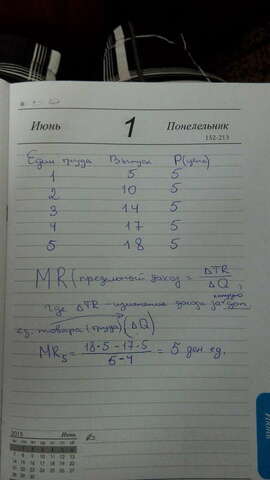 Июнь 1 Понедельник
152-213
Един труда Выпуск P(цена)
1 5 5
2 10 5
3 14 5
4 17 5
5 18 5
MR (предельный доход = ΔTR / ΔQ ,
где ΔTR - изменение дохода за доп
ед. товара (труда) (ΔQ)
MR5 = 18·5 - 17·5 / 5-4 = 5 ден ед.
2015 Июнь